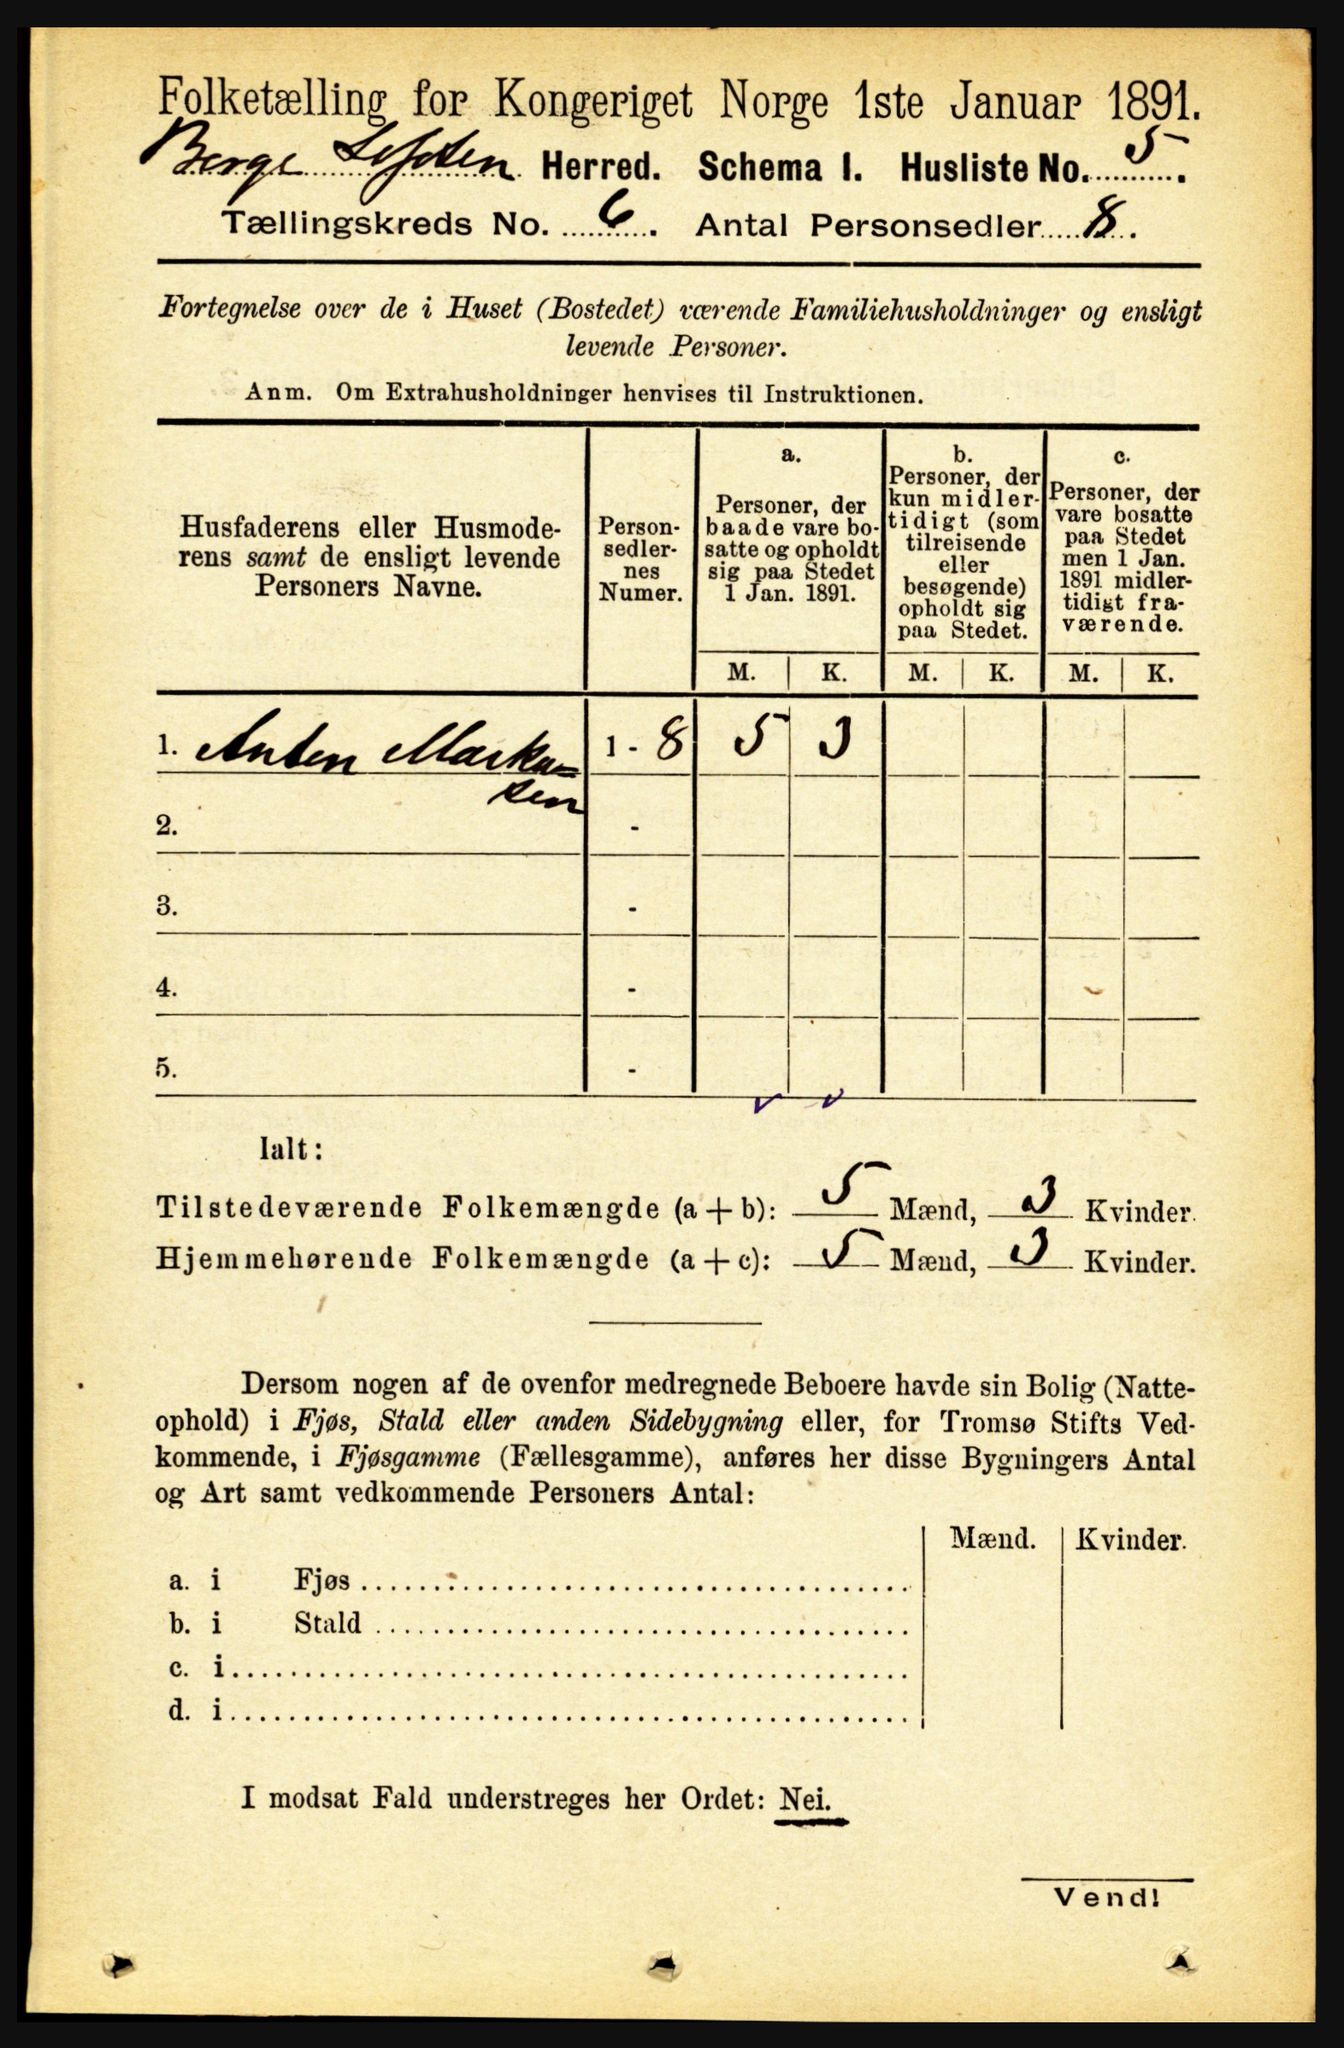 Folketælling for Kongeriget Norge 1ste Januar 1891.
Borge Lofoten Herred. Schema I. Husliste No. 5.
Tællingskreds No. 6. Antal Personsedler 8.
Fortegnelse over de i Huset (Bostedet) værende Familiehusholdninger og ensligt
levende Personer.
Anm. Om Extrahusholdninger henvises til Instruktionen.
Husfaderens eller Husmode-
rens samt de ensligt levende
Personers Navne.
Person-
sedler-
nes
Numer.
a.
Personer, der
baade vare bo-
satte og opholdt
sig paa Stedet
1 Jan. 1891.
b.
Personer, der
kun midler-
tidigt (som
tilreisende
eller
besøgende)
opholdt sig
paa Stedet.
c.
Personer, der
vare bosatte
paa Stedet
men 1 Jan.
1891 midler-
tidigt fra-
værende.
M. K. M. K. M. K.
1. Anton Marku=
sen
1 - 8 5 3
2. -
3. -
4. -
5. -
Ialt:
Tilstedeværende Folkemængde (a + b): 5 Mænd, 3 Kvinder.
Hjemmehørende Folkemængde (a + c): 5 Mænd, 3 Kvinder.
Dersom nogen af de ovenfor medregnede Beboere havde sin Bolig (Natte-
ophold) i Fjøs, Stald eller anden Sidebygning eller, for Tromsø Stifts Ved-
kommende, i Fjøsgamme (Fællesgamme), anføres her disse Bygningers Antal
og Art samt vedkommende Personers Antal:
Mænd. Kvinder.
a. i Fjøs
b. i Stald
c. i
d. i
I modsat Fald understreges her Ordet: Nei.
Vend!